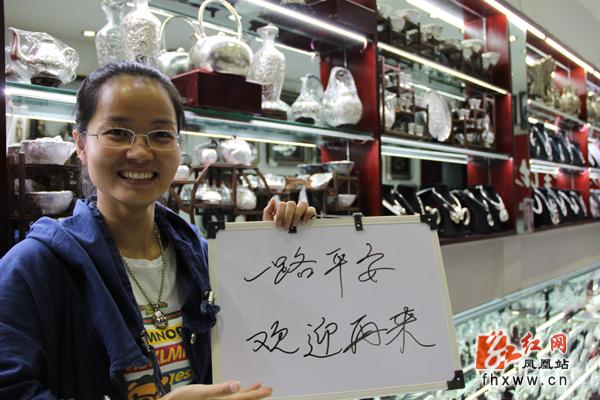 一路平安
欢迎再来
MNO
红网
凤凰站
fhxww.cn